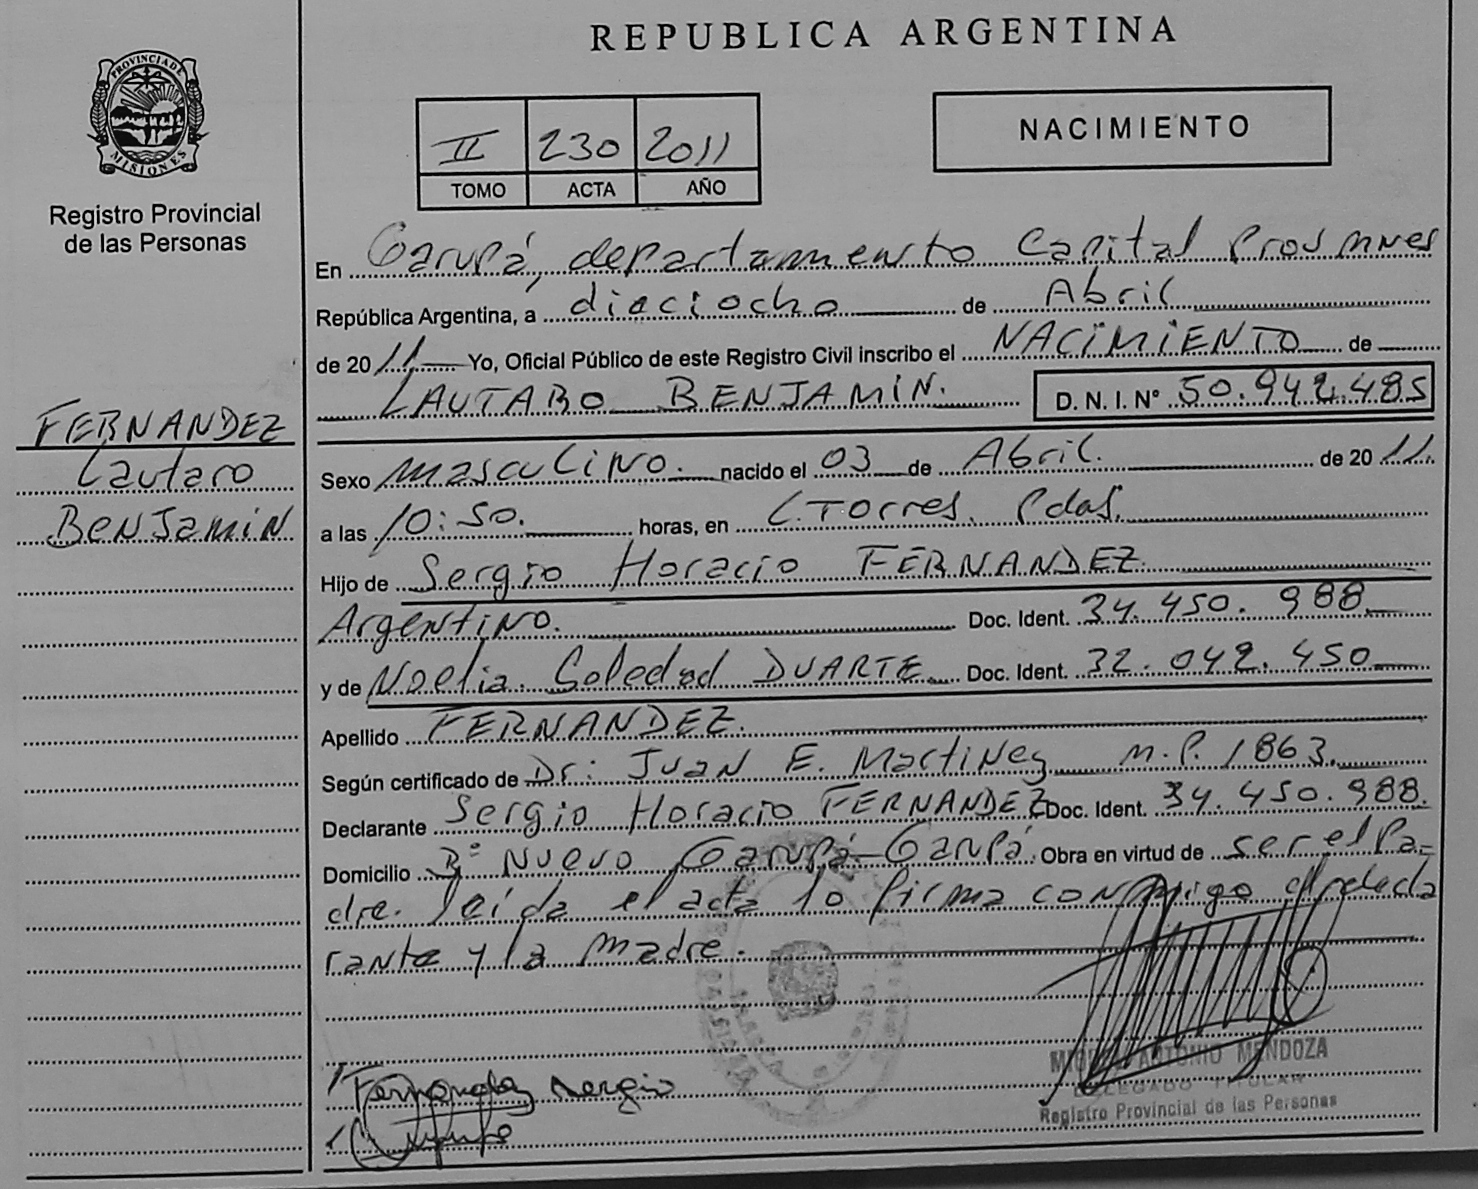 REPUBLICA ARGENTINA
PROVINCIA DE MISIONES
Registro Provincial
de las Personas
II 230 2011
TOMO ACTA AÑO
NACIMIENTO
En Garupá, departamento Capital Prov Mnes
República Argentina, a dieciocho de Abril
de 2011 Yo, Oficial Público de este Registro Civil inscribo el NACIMIENTO de
LAUTARO BENJAMIN. D. N. I. Nº 50.942.485
FERNANDEZ
Lautaro
BENJAMIN
Sexo masculino. nacido el 03 de Abril. de 2011.
a las 10:50. horas, en L.Torres. Pdas.
Hijo de Sergio Horacio FERNANDEZ
Argentino. Doc. Ident. 34.450.988
y de Noelia Soledad DUARTE Doc. Ident. 32.042.450
Apellido FERNANDEZ.
Según certificado de Dr: Juan E. Martinez M.P. 1863.
Declarante Sergio Horacio FERNANDEZ Doc. Ident. 34.450.988.
Domicilio Bº Nuevo Garupá-Garupá. Obra en virtud de ser el Pa-
dre. leída el acta lo firma conmigo el decla
rante y la madre.
Fernandez Sergio
MIGUEL ANTONIO MENDOZA
DELEGADO TITULAR
Registro Provincial de las Personas